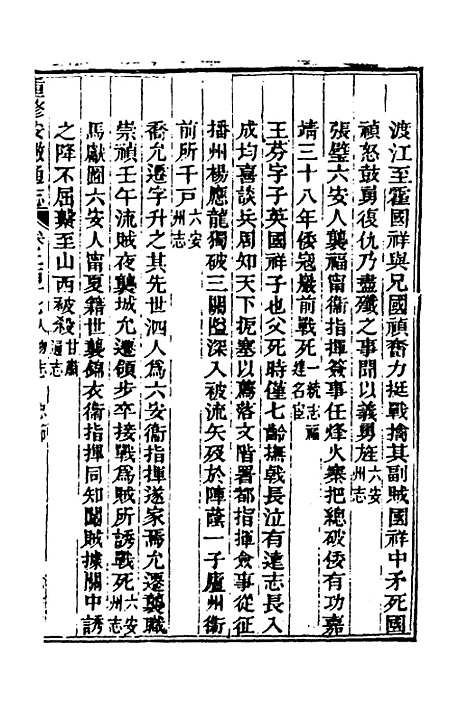 渡江至霍國祥與兄國禎奮力挺戰擒其副賊國祥中矛死國
禎怒鼓勇復仇乃盡殲之事聞以義勇旌六安州志
張璧六安人襲福甯衞指揮簽事任烽火寨把總破倭有功嘉
靖三十八年倭寇巖前戰死一統志福建名宦
王芬字子英國祥子也父死時僅七齡撫戟長泣有遠志長入
成均喜談兵周知天下扼塞以薦落文階署都指揮僉事從征
播州楊應龍獨破三關隘深入被流矢歿於陣蔭一子廬州衞
前所千戸六安州志
喬允遷字升之其先世泗人爲六安衞指揮遂家焉允遷襲職
崇禎壬午流賊夜襲城允遷領步卒接戰爲賊所誘戰死六安州志
馬獻圖六安人甯夏籍世襲錦衣衞指揮同知闖賊據關中誘
之降不屈繫至山西被殺甘肅通志
重修安徽通志
人物志
忠節